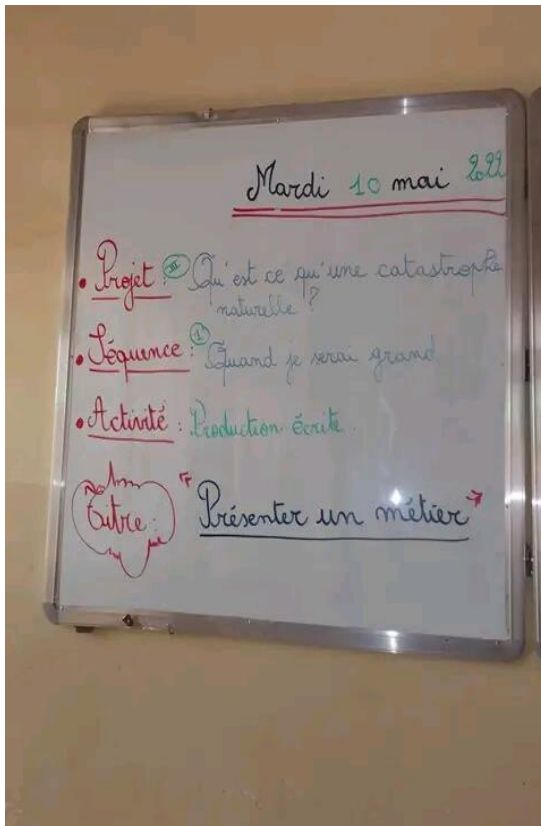 Mardi 10 mai 2022
• Projet : III Qu'est ce qu'une catastrophe
naturelle ?
• Séquence : 1 Quand je serai grand
• Activité : Production écrite.
Titre : "Présenter un métier"